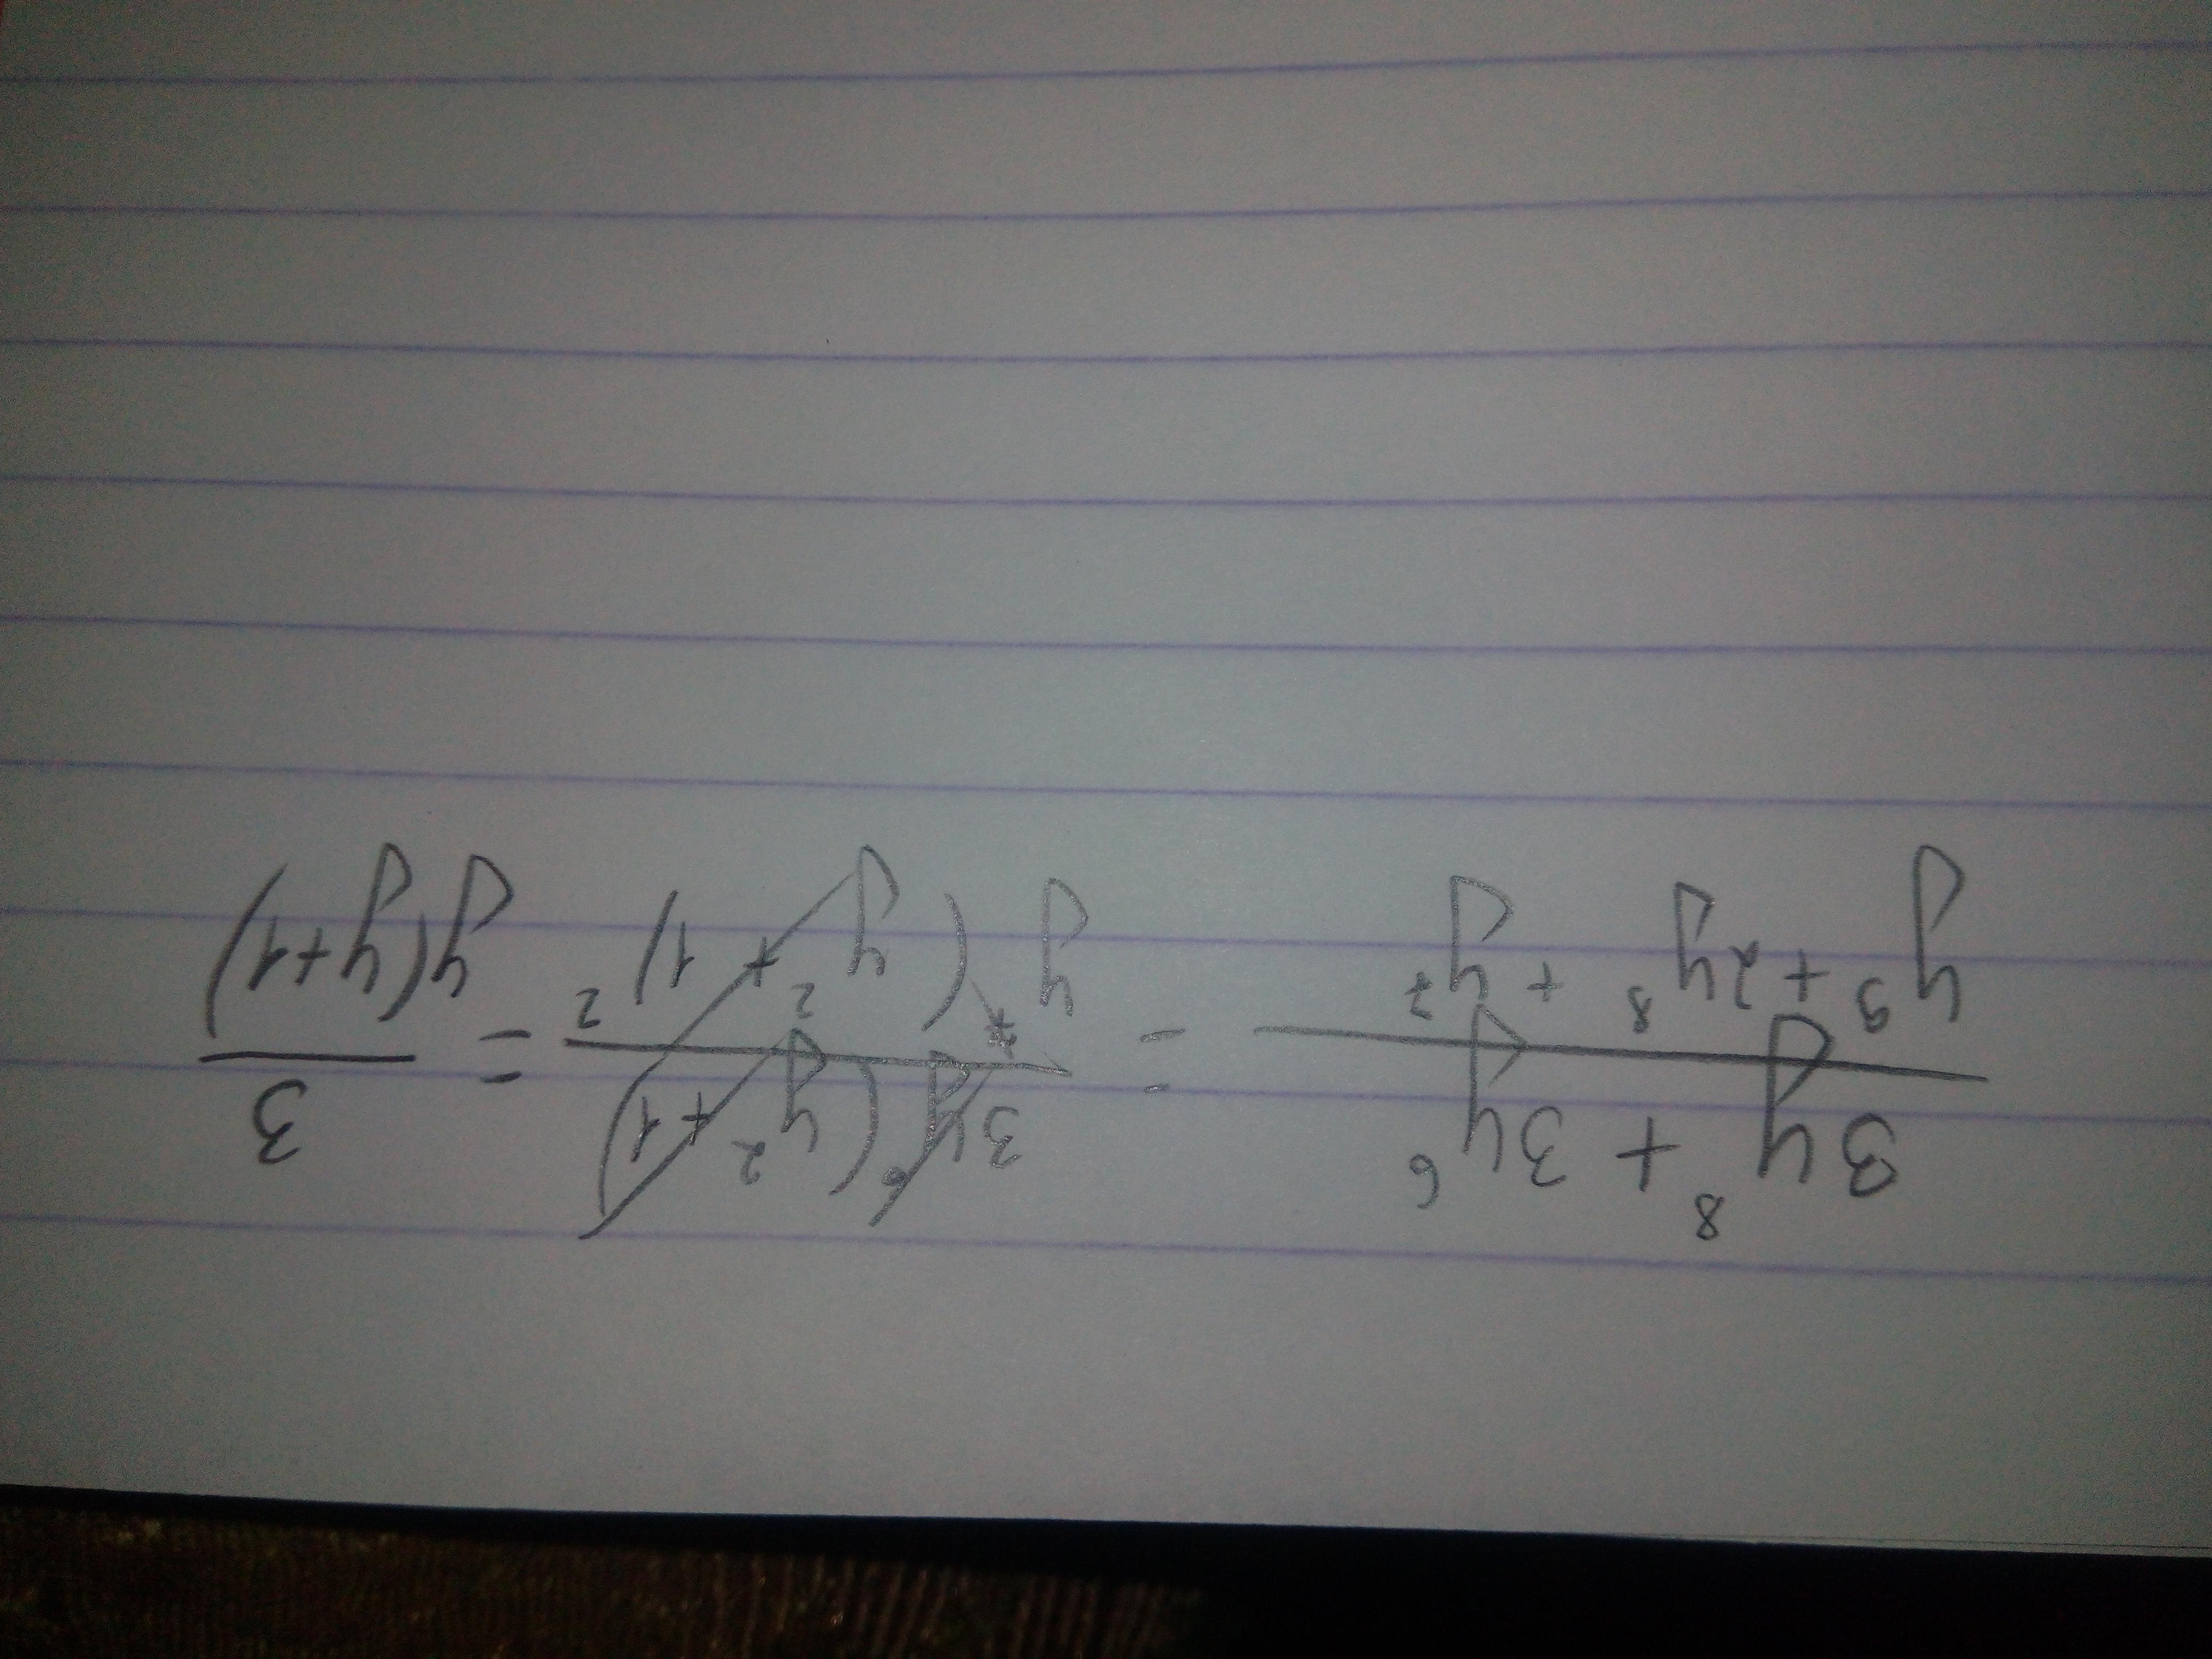 3y⁸ + 3y⁶ / y⁹ + 2y⁸ + y⁷ = 3y⁶(y² + 1) / y⁷(y² + 1)² = 3 / y(y+1)